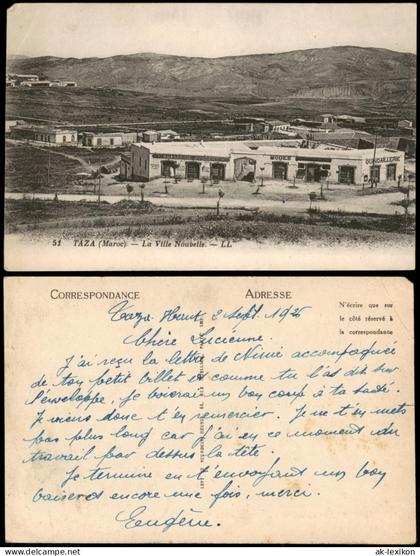 MODES
QUINCAILLERIE
51 TAZA (Maroc). — La Ville Nouvelle. — LL
CORRESPONDANCE
ADRESSE
N'écrire que sur
le côté réservé à
la correspondance
Taza-Haut 2 Sept. 1925
Chère Lucienne.
J'ai reçu la lettre de Nini accompagnée
de ton petit billet et comme tu l'as dit sur
l'enveloppe, je boirai un bon coup à ta santé.
Je viens donc t'en remercier. Je ne t'en mets
pas plus long car j'ai en ce moment du
travail par dessus la tête.
Je termine en t'envoyant un bon
baiser et encore une fois, merci.
Eugène.
© www.ak-lexikon.de
ak-lexikon